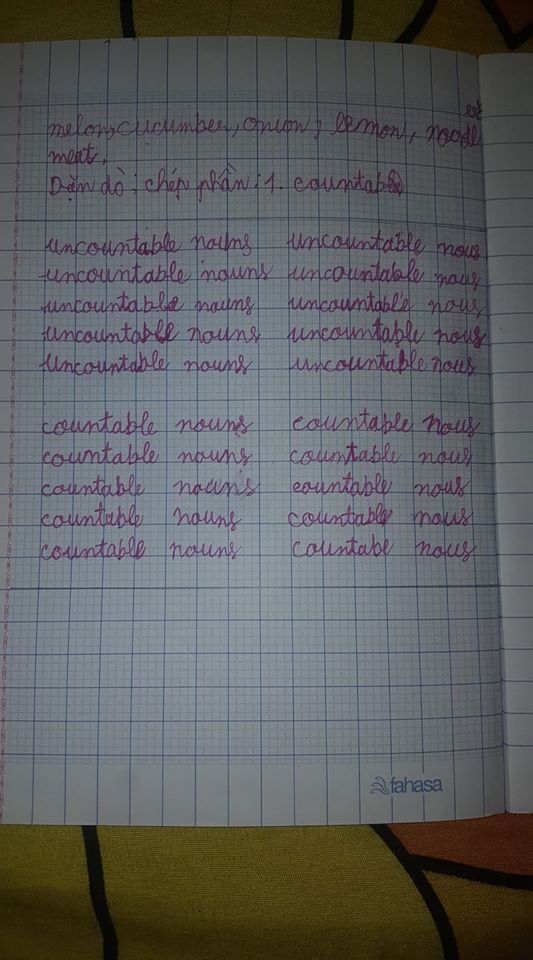 melon, cucumber, onion, lemon, noodl
meat,
Dặn dò: chép phần: 1. countab
uncountable nouns uncountable nous
uncountable nouns uncountable nous
uncountable nouns uncountable nous
uncountable nouns uncountable nous
Uncountable nouns uncountable nous
countable nouns countable nous
countable nouns countable nous
countable nouns countable nous
countable nouns countable nous
countable nouns countabe nous
fahasa